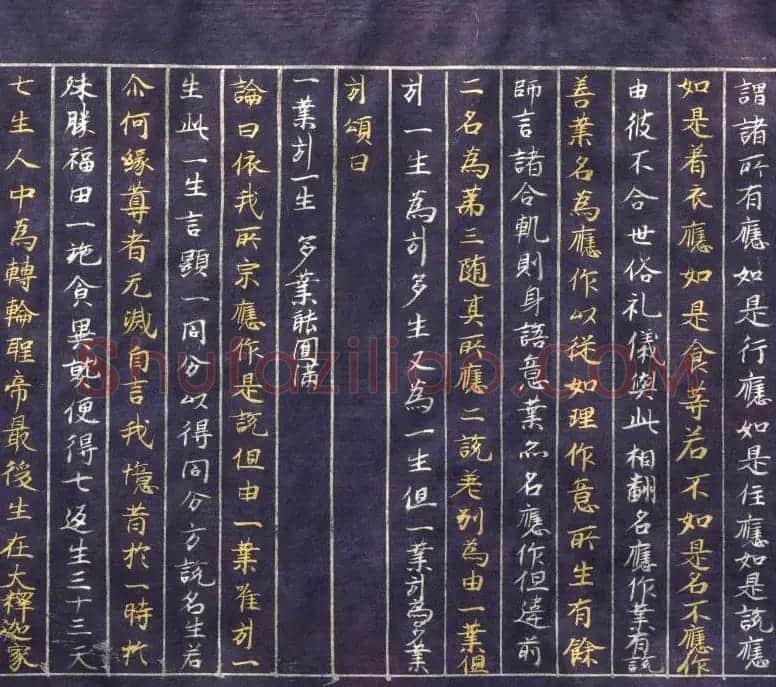 謂諸所有應如是行應如是住應如是說應
如是着衣應如是食等若不如是名不應作
由彼不合世俗礼儀與此相翻名應作業有說
善業名為應作以從如理作意所生有餘
師言諸合軌則身語意業亦名應作但違前
二名為第三随其所應二說差别為由一業但
引一生為引多生又為一生但一業引為多業
引頌曰
一業引一生 多業能圓滿
論曰依我所宗應作是說但由一業唯引一
生此一生言顯一同分以得同分方說名生若
尒何緣尊者无滅自言我憶昔於一時於
殊勝福田一施食異熟便得七返生三十三天
七生人中為轉輪聖帝最後生在大釋迦家
Shufaziliao.COM